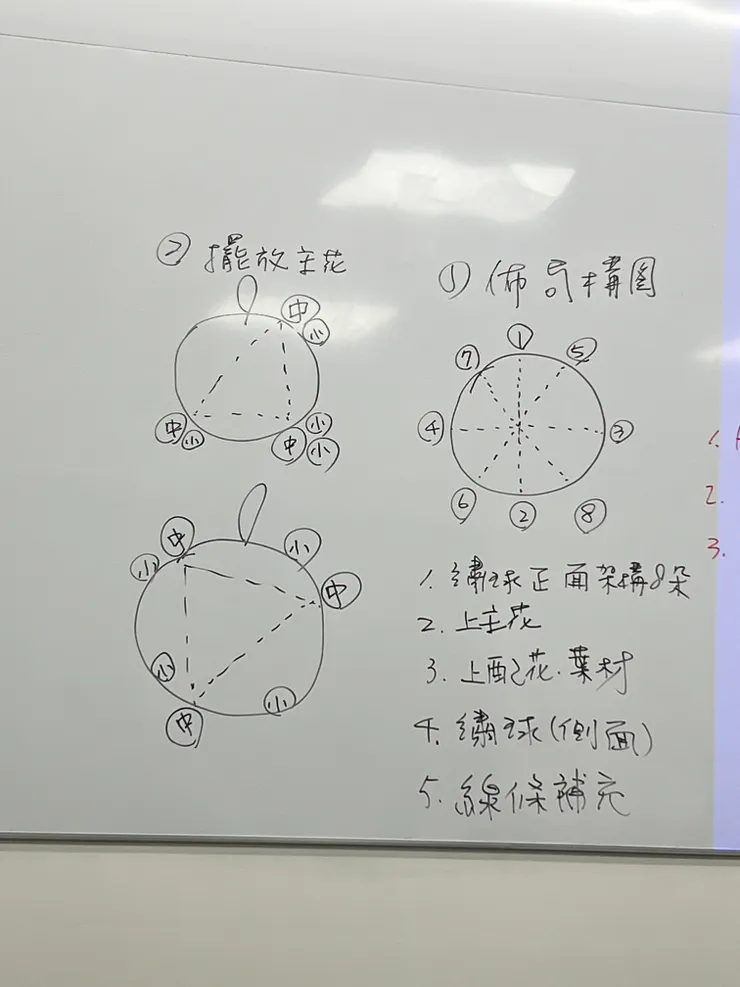 ② 擺放主花
中
小
中
小
小
中
小
中
小
小
中
小
小
中
① 佈局構圖
1
7
5
4
3
6
2
8
1. 繡球正面架構8朵
2. 上主花
3. 上配花.葉材
4. 繡球(側面)
5. 線條補充
1.
2.
3.